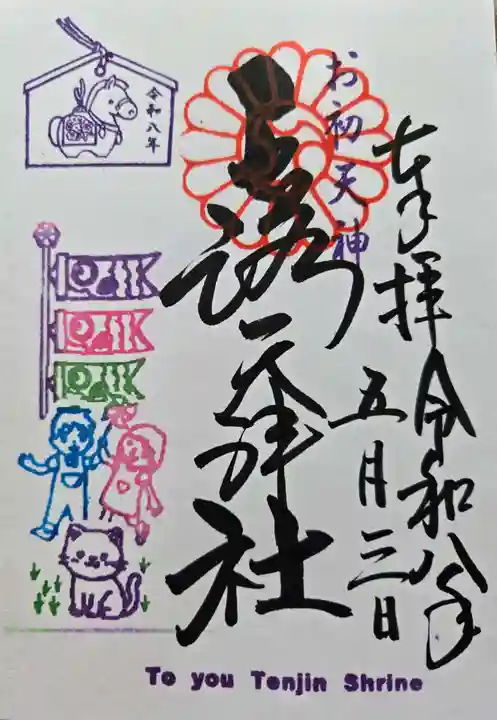 奉拝 令和八年
五月三日
お初天神
露天神社
令和八年
To you Tenjin Shrine